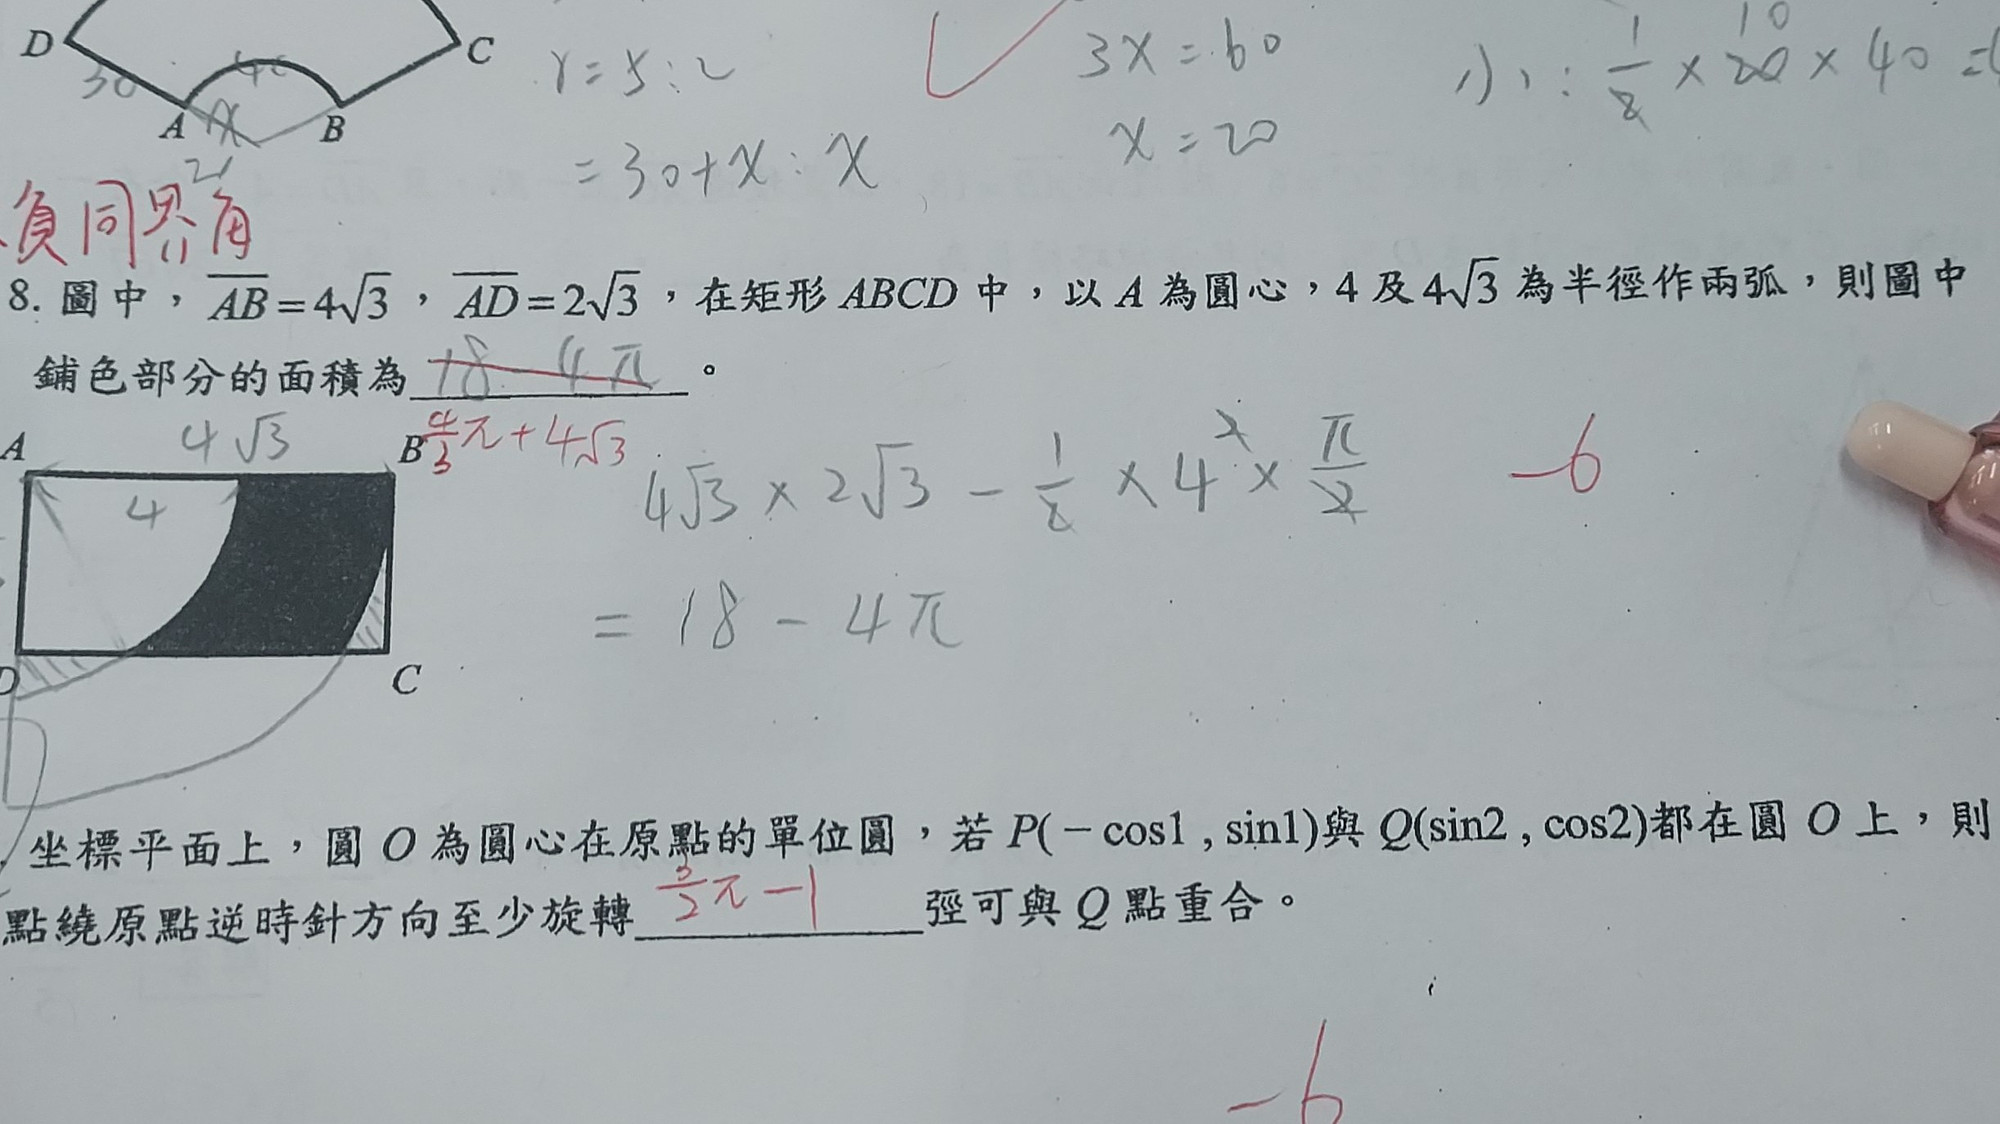 D
C
30
A
x
B
r = 5 : 2
= 30 + x : x
3x = 60
x = 20
1/2 × 20 × 40 =
10
負同界角
8. 圖中，AB = 4√3，AD = 2√3，在矩形 ABCD 中，以 A 為圓心，4 及 4√3 為半徑作兩弧，則圖中
鋪色部分的面積為 18 - 4π 。
4/3 π + 4√3
A
4√3
B
4
D
C
4√3 × 2√3 - 1/2 × 4² × π/2
-6
= 18 - 4π
坐標平面上，圓 O 為圓心在原點的單位圓，若 P(－cos1 , sin1)與 Q(sin2 , cos2)都在圓 O 上，則
點繞原點逆時針方向至少旋轉 3/2 π - 1 弳可與 Q 點重合。
-6